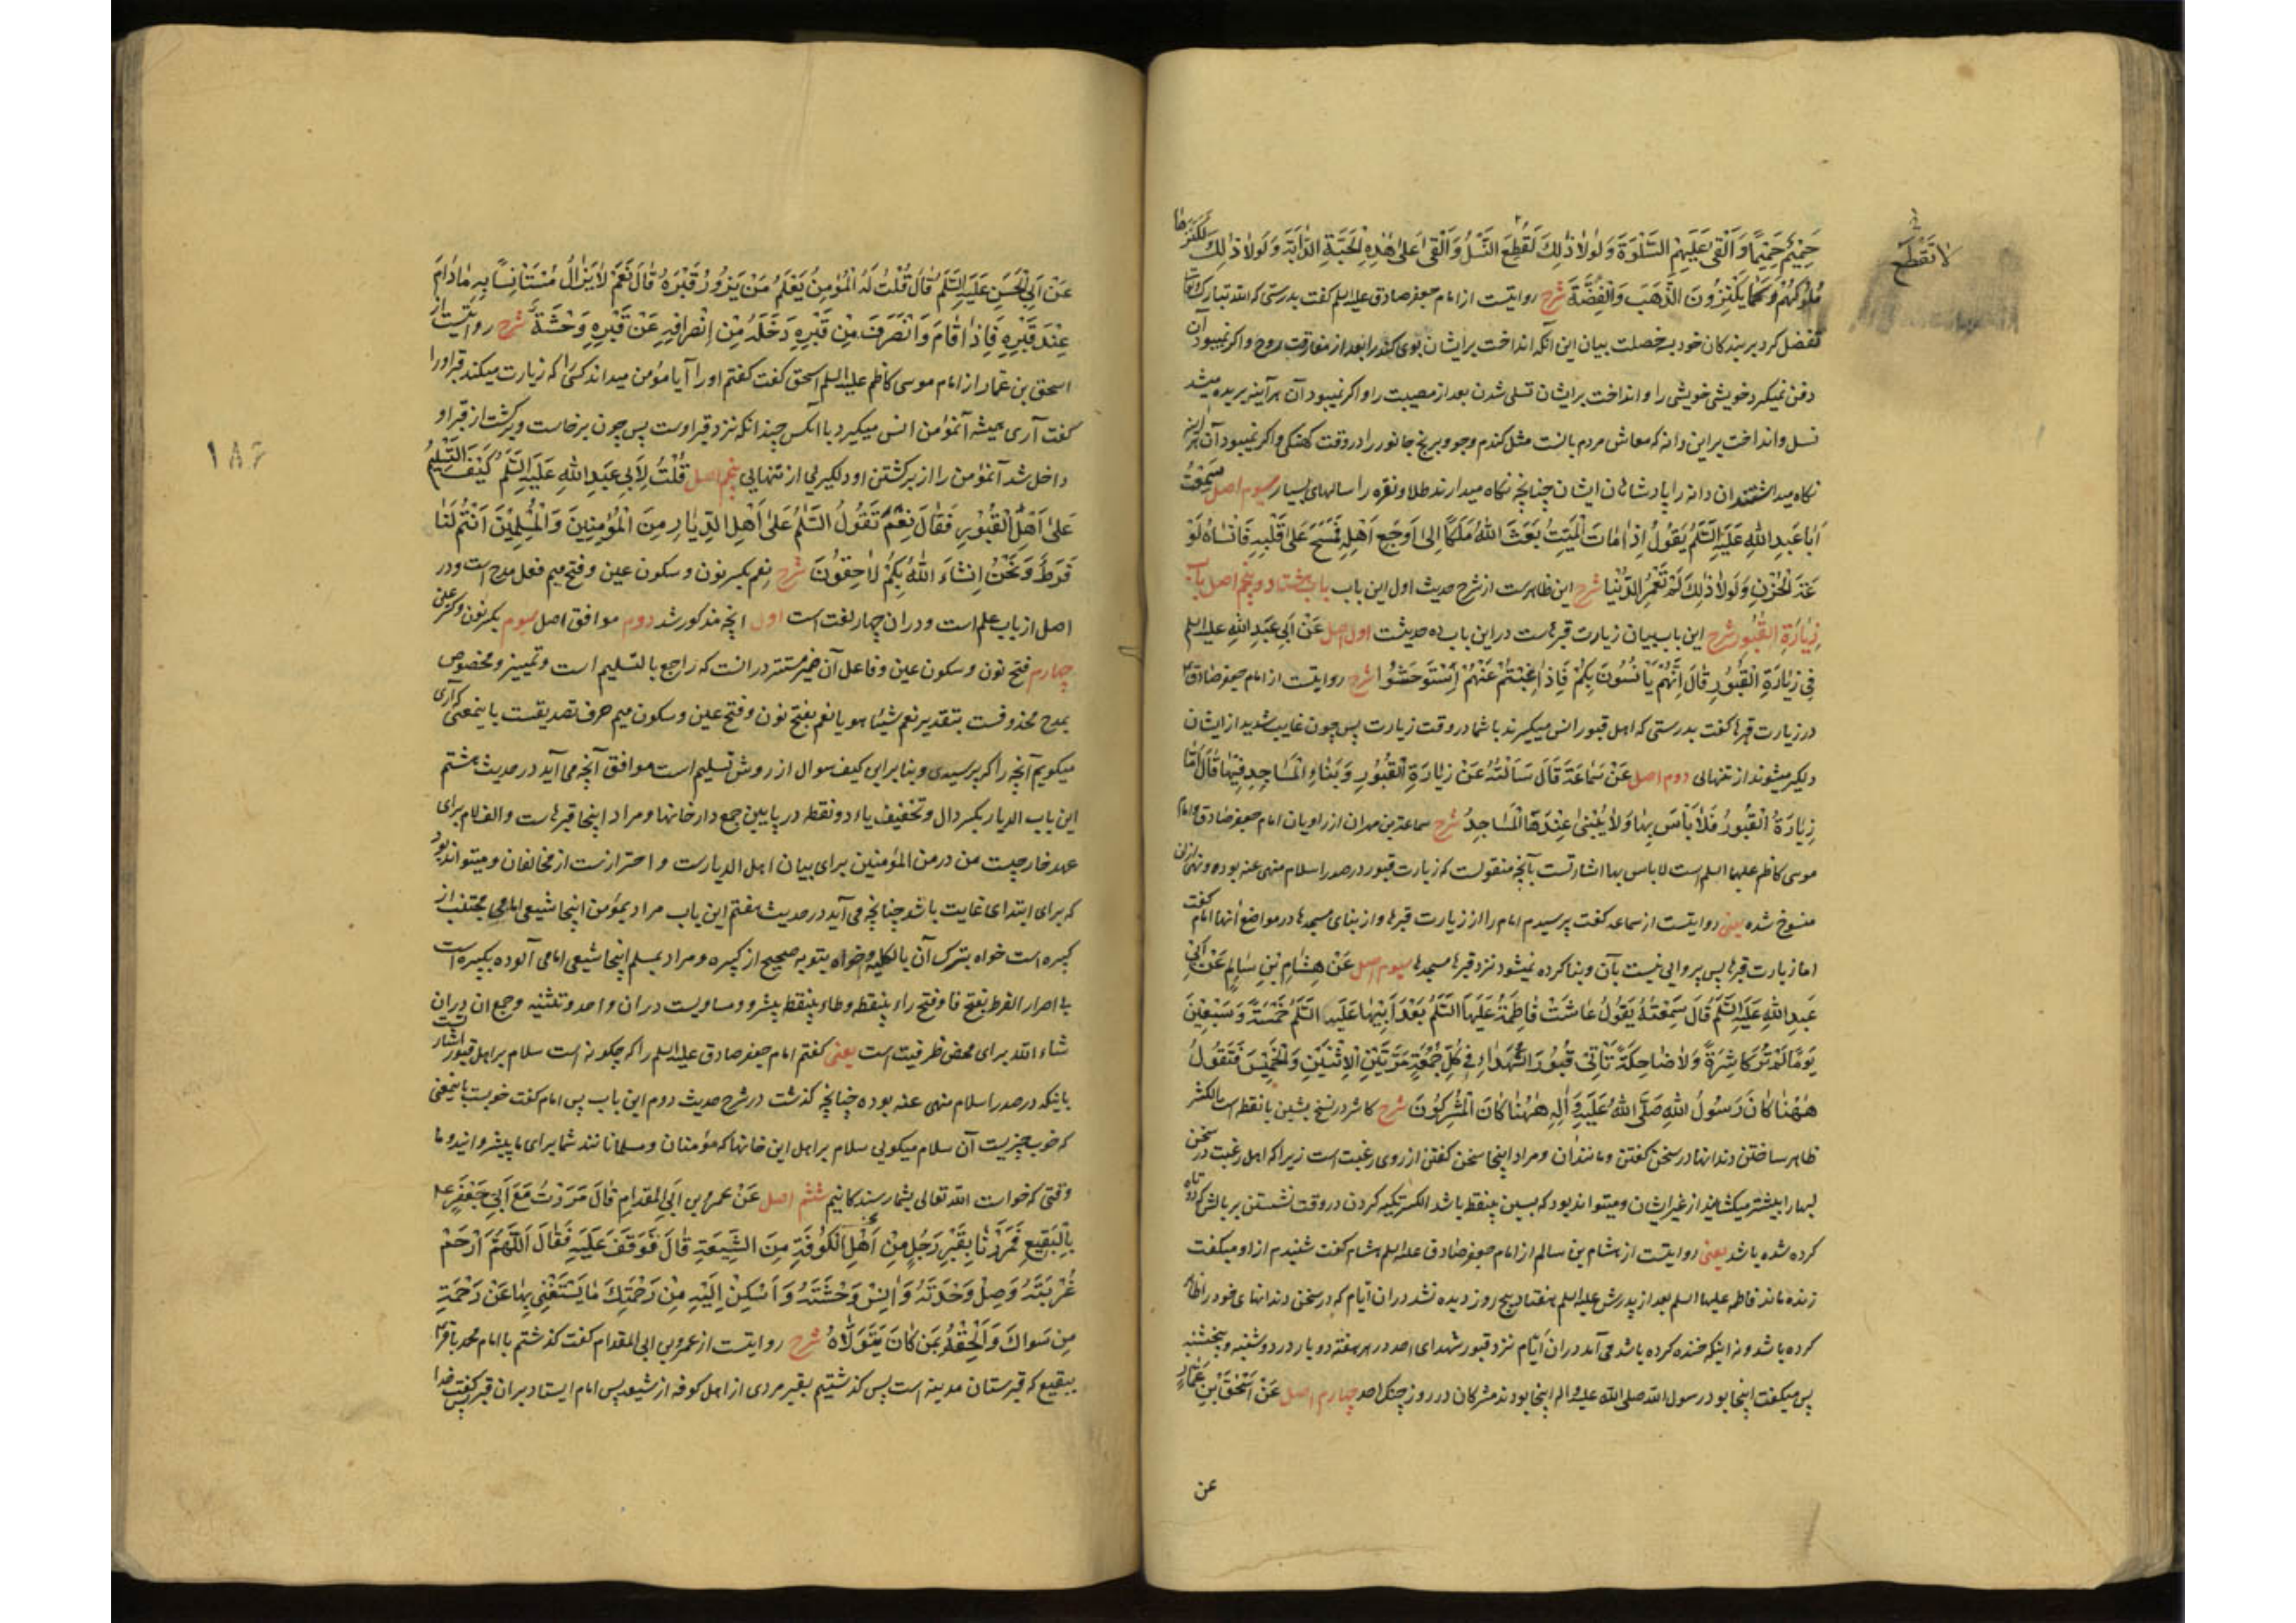 لانقطع
حَمِيْمٌ حَمِيْمًا وَاَلْقى عَلَيهِمِ السَّلْوَةَ وَلَولاٰ ذٰلِكَ لَقُطِعَ النَّسْلُ وَاَلْقى عَلىٰ هٰذِهِ الْحَبَّةِ الدّٰابَّةَ وَلَولاٰ ذٰلِكَ لَكَنَزَهٰا
مُلُوكُهُمْ كَمٰا يَكْنِزُونَ الذَّهَبَ وَالْفِضَّةَ شرح روایتست از امام جعفر صادق علیه السلم گفت بدرستی که الله تبارک وتعالی
تفضل کرد بر بندکان خود بسه خصلت بیان این آنکه انداخت برایشان بوی کند را بعد از مفارقت روح واکر نمیبود آن
دفن نمیکرد خویشی خویشی را و انداخت برایشان تسلی شدن بعد از مصیبت را و اکر نمیبود آن هرآینه بریده میشد
نسل وانداخت براین دانه که معاش مردم بانست مثل کندم وجو وبرنج جانور را در وقت کهنکی واکر نمیبود آن هرآینه
نکاه میداشتند آن دانه را پادشاهان ایشان چنانچه نکاه میدارند طلا ونقره را سالهای بسیار سیوم اصل سَمِعْتُ
اَبٰا عَبدِ اللهِ عَلَيهِ السَّلَمُ يَقُولُ اِذٰا مٰاتَ الْمَيِّتُ بَعَثَ اللهُ مَلَكًا اِلىٰ اَوجَعِ اَهْلِهِ فَمَسَحَ عَلىٰ قَلْبِهِ فَاَنْسٰاهُ لَوْ
عَةَ الْحُزْنِ وَلَولاٰ ذٰلِكَ لَمْ تَعْمُرِ الدُّنْيٰا شرح این ظاهرست از شرح حدیث اول این باب باب هشتاد وپنجم اصل بٰابُ
زِيٰارَةِ القُبُورِ شرح این باب بیان زیارت قبرهاست دراین باب ده حدیثست اول اصل عَنْ اَبِي عَبدِ اللهِ علیه السلم
فِي زِيٰارَةِ الْقُبُورِ قٰالَ اِنَّهُمْ يَأْنَسُونَ بِكُمْ فَاِذٰا غِبْتُمْ عَنْهُمْ اِسْتَوحَشُوا شرح روایتست از امام جعفر صٰادق ع
در زیارت قبرها گفت بدرستی که اهل قبور انس میکیرند باشما در وقت زیارت پس چون غایب شدید از ایشان
دلکیر میشوند از تنهائی دوم اصل عَنْ سَمٰاعَةَ قٰالَ سَاَلْتُهُ عَنْ زِيٰارَةِ الْقُبُورِ وَبِنٰاءِ الْمَسٰاجِدِ فِيْهٰا فَقٰالَ اَمّٰا
زِيٰارَةُ الْقُبُورِ فَلاٰ بَأْسَ بِهٰا وَلاٰ يُبْنىٰ عِنْدَهَا الْمَسٰاجِدُ شرح سماعة بن مهران از راویان امام جعفر صٰادق وامام
موسی کاظم علیهما السلم است لا باس بها اشارتست بآنچه منقولست که زیارت قبور در صدر اسلام منهی عنه بوده ونهی ازان
منسوخ شده یعنی روایتست از سماعه گفت پرسیدم امام را از زیارت قبرها و از بنای مسجدها درمواضع آنها امام گفت
اما زیارت قبرها پس پروائی نیست بآن وبنا کرده نمیشود نزد قبرها مسجدها سیوم اصل عَنْ هِشٰامِ بْنِ سٰالِمٍ عَنْ اَبِي
عَبدِ اللهِ عَلَيهِ السَّلَمُ قٰالَ سَمِعْتُهُ يَقُولُ عٰاشَتْ فٰاطِمَةُ عَلَيهَا السَّلَمُ بَعْدَ اَبِيْهٰا عَلَيهِ السَّلَمُ خَمْسَةً وَسَبْعِيْنَ
يَومًا لَمْ تُرَ كٰاشِرَةً وَلاٰ ضٰاحِكَةً تَأْتِي قُبُورَ الشُّهَدٰاءِ فِي كُلِّ جُمْعَةٍ مَرَّتَيْنِ الْاِثْنَيْنِ وَالْخَمِيْسَ فَتَقُولُ
هٰهُنٰا كٰانَ رَسُولُ اللهِ صَلَّى اللهُ عَلَيهِ وَاٰلِهِ هٰهُنٰا كٰانَ الْمُشْرِكُونَ شرح کاشر در نسخ بشین بانقطه است الکشر
ظاهر ساختن دندانها در سخن گفتن ومانند آن ومراد اینجا سخن گفتن از روی رغبت است زیرا که اهل رغبت در سخن
لبها را بیشتر میکشایند از غیر ایشان ومیتواند بود که بسین بینقطه باشد الکسر تکیه کردن در وقت نشستن بر بالش که دوتاه
کرده شده باشد یعنی روایتست از هشام بن سالم از امام جعفر صٰادق علیه السلم هشام گفت شنیدم از او میکفت
زنده ماند فاطمه علیها السلم بعد از پدرش علیه السلم هفتاد وپنج روز دیده نشد دران ایام که در سخن دندانهای خود را ظاهر
کرده باشد ونه اینکه خنده کرده باشد می آمد دران ایّام نزد قبور شهدای احد در هر هفته دو بار در دوشنبه وپنجشنبه
پس میکفت اینجا بود رسول الله صلی الله علیه واله اینجا بودند مشرکان در روز جنک احد چهارم اصل عَنْ اِسْحٰقَ بْنِ عَمّٰارٍ
عن
عَنْ اَبِي الْحَسَنِ عَلَيهِ السَّلَمُ قٰالَ قُلْتُ لَهُ الْمُؤْمِنُ يَعْلَمُ مَنْ يَزُورُ قَبْرَهُ قٰالَ نَعَمْ لاٰ يَزٰالُ مُسْتَأْنِسًا بِهِ مٰادٰامَ
عِنْدَ قَبْرِهِ فَاِذٰا قٰامَ وَانْصَرَفَ مِنْ قَبْرِهِ دَخَلَهُ مِنْ اِنْصِرٰافِهِ عَنْ قَبْرِهِ وَحْشَةٌ شرح روایتست از
اسحق بن عمار از امام موسی کاظم علیه السلم اسحق گفت گفتم اورا آیا مؤمن میداند کسی را که زیارت میکند قبر اورا
گفت آری همیشه آنمؤمن انس میکیرد باآنکس چندانکه نزد قبر اوست پس چون برخاست وبرکشت از قبر او
داخل شد آنمؤمن را از برکشتن او دلکیری از تنهایی پنجم اصل قُلْتُ لِاَبِي عَبدِ اللهِ عَلَيهِ السَّلَمُ كَيْفَ التَّسْلِيْمُ
عَلىٰ اَهْلِ الْقُبُورِ فَقٰالَ نِعْمَ تَقُولُ السَّلٰمُ عَلىٰ اَهْلِ الدِّيٰارِ مِنَ الْمُؤْمِنِيْنَ وَالْمُسْلِمِيْنَ اَنْتُمْ لَنٰا
فَرَطٌ وَنَحْنُ اِنْشٰاءَ اللهُ بِكُمْ لاٰحِقُونَ شرح نعم بکسر نون وسکون عین وفتح میم فعل مدح است ودر
اصل از باب علم است ودران چهار لغت است اول آنچه مذکور شد دوم موافق اصل سیوم بکسر نون وکسر عین
چهارم فتح نون وسکون عین وفاعل آن ضمیر مستتر درانست که راجع بالتسلیم است وتمییز ومخصوص
بمدح محذوفست بتقدیر نعم شیئا هو یا نعم بفتح نون وفتح عین وسکون میم حرف تصدیقست باینمعنی که آری
میکویم آنچه را که پرسیدی وبنابراین کیف سوال از روش تسلیم است موافق آنچه می آید در حدیث هشتم
این باب الدیار بکسر دال وتخفیف یاء دونقطه در پایین جمع دار خانها ومراد اینجا قبرهاست والف لام برای
عهد خارجیست من در من المؤمنین برای بیان اهل الدیارست واحترازست از مخالفان ومیتواند بود
که برای ابتدای غایت باشد چنانچه می آید در حدیث هفتم این باب مراد بمؤمن اینجا شیعی امامی مجتنب از
کبیره است خواه بترک آن بالکلیه وخواه بتوبه صحیح از کبیره ومراد بمسلم اینجا شیعی امامی آلوده بکبیره است
بی اصرار الفرط بفتح فا وفتح راء بینقطه وطاء بینقطه پیشرو ومساویست دران واحد وتثنیه وجمع ان دران
شاء الله برای محض ظرفیت است یعنی گفتم امام جعفر صادق علیه السلم را که چکونه است سلام بر اهل قبور اشارتست
باینکه در صدر اسلام منهی عنه بوده چنانچه کذشت در شرح حدیث دوم این باب پس امام گفت خوبست باینمعنی
که خوب چیزیست آن سلام میکویی سلام بر اهل این خانها که مؤمنان ومسلمانانند شما برای ما پیشروانید وما
وقتی که خواست الله تعالی بشما رسندکانیم ششم اصل عَنْ عَمرِو بنِ اَبِي المِقدٰامِ قٰالَ مَرَرْتُ مَعَ اَبِي جَعْفَرٍ ع
بِالْبَقِيعِ فَمَرَرْنٰا بِقَبْرِ رَجُلٍ مِنْ اَهْلِ الْكُوفَةِ مِنَ الشِّيعَةِ قٰالَ فَوَقَفَ عَلَيهِ فَقٰالَ اَللّٰهُمَّ ارْحَمْ
غُرْبَتَهُ وَصِلْ وَحْدَتَهُ وَاٰنِسْ وَحْشَتَهُ وَاَسْكِنْ اِلَيْهِ مِنْ رَحْمَتِكَ مٰا يَسْتَغْنِي بِهٰا عَنْ رَحْمَةِ
مَنْ سَوٰاكَ وَاَلْحِقْهُ بِمَنْ كٰانَ يَتَوَلاّٰهُ شرح روایتست از عمرو بن ابی المقدام گفت کذشتم با امام محمد باقر ع
ببقیع که قبرستان مدینه است پس کذشتیم بقبر مردی از اهل کوفه از شیعه پس امام ایستاد بران قبر پس گفت خدا
۱۸۶